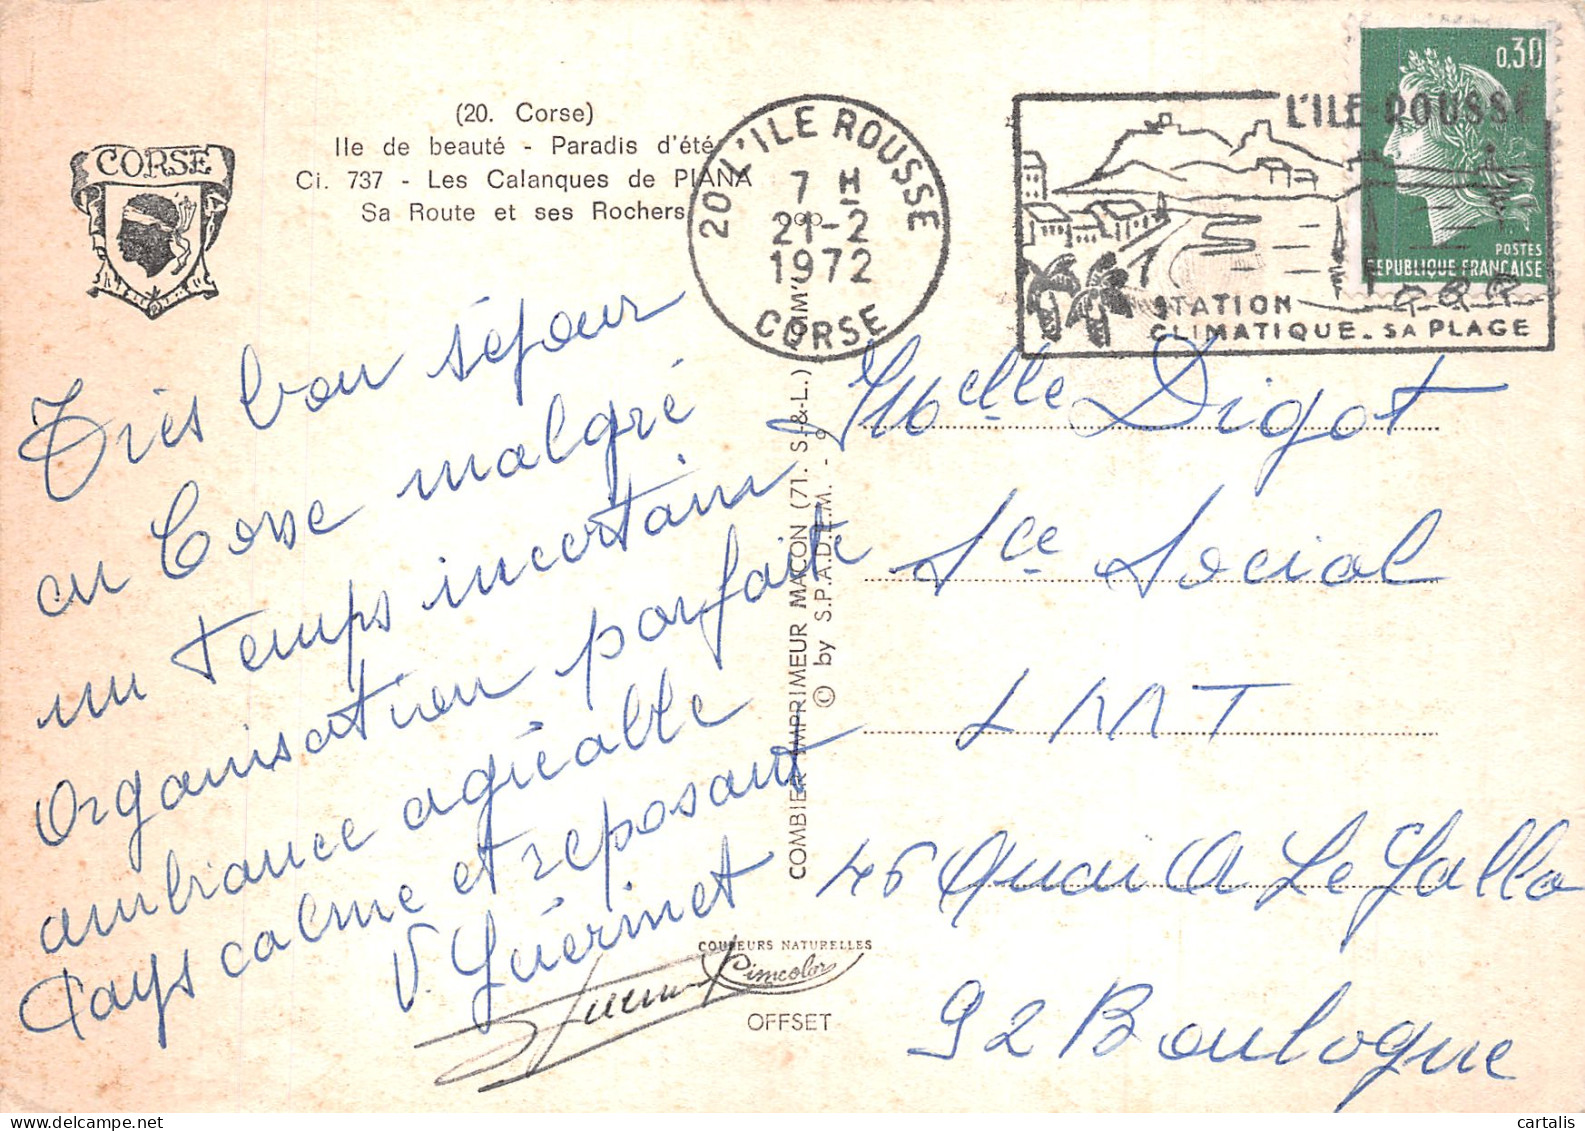 CORSE
(20. Corse)
Ile de beauté - Paradis d'été
Ci. 737 - Les Calanques de PIANA
Sa Route et ses Rochers
20 L'ILE ROUSSE
7 H
21-2
1972
CORSE
L'ILE-ROUSSE
STATION
CLIMATIQUE. SA PLAGE
0,30
POSTES
REPUBLIQUE FRANÇAISE
Très bon séjour
en Corse malgré
un temps incertain
Organisation parfaite
ambiance agréable
Pays calme et reposant
V. Guérinet
COMBIER IMPRIMEUR MACON (71. S.-&-L.) "CIM"
© by S.P.A.D.E.M. - 9
Melle Digot
Sce Social
LMT
46 Quai A Le Gallo
92 Boulogne
COULEURS NATURELLES
Cimcolor
OFFSET
cartalis
delcampe.net